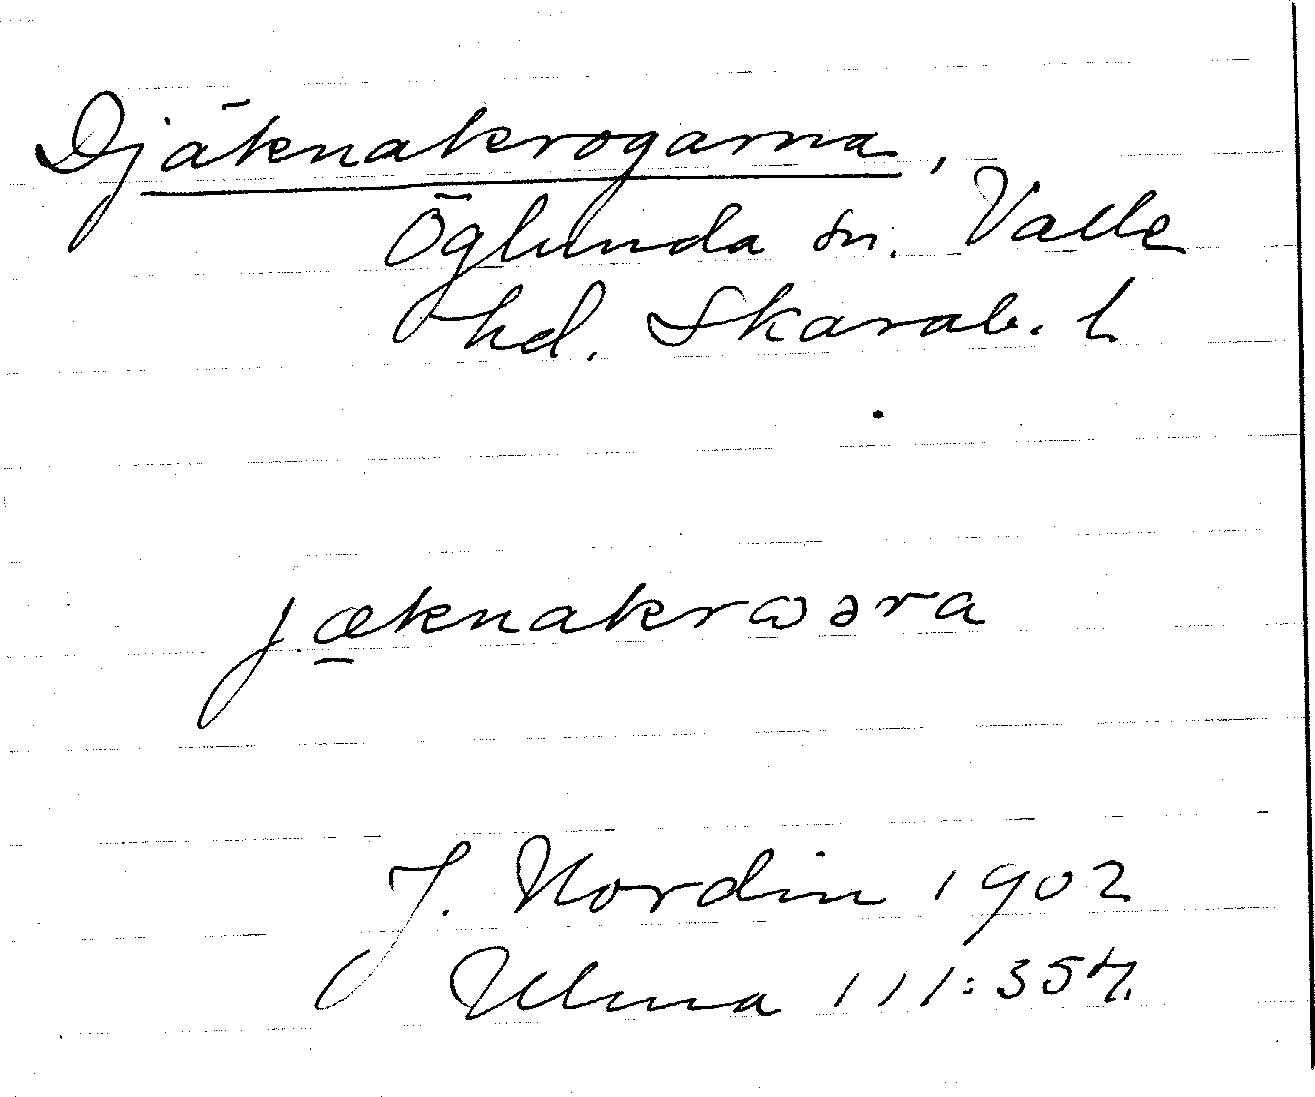 Djäknakrogarna,
Öglunda sn. Valle
hd. Skarab. l.
jæ̱knakrɷəra
J. Nordin 1902
Ulma 111:357.